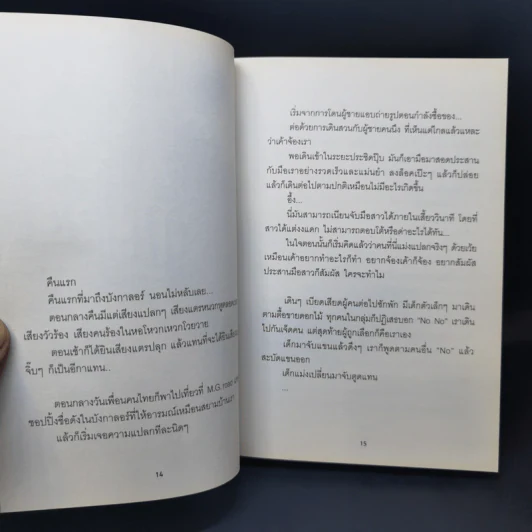 คืนแรก
คืนแรกที่มาถึงบังกาลอร์ นอนไม่หลับเลย...
ตอนกลางคืนมีแต่เสียงแปลกๆ เสียงแตรหนวกหู
เสียงวัวร้อง เสียงคนร้องโหยโหวกเหวกโวยวาย
ตอนเช้าก็ได้ยินเสียงแตรปลุก แล้วแทนที่จะได้ยิน
จิ๊บๆ ก็เป็นอีกาแทน...
ตอนกลางวันเพื่อนคนไทยก็พาไปเที่ยวที่ M.G. road
ชอปปิ้งชื่อดังในบังกาลอร์ที่ให้อารมณ์เหมือนสยามบ้านเรา
แล้วก็เริ่มเจอความแปลกทีละนิดๆ
14
เริ่มจากการโดนผู้ชายแอบถ่ายรูปตอนกำลังซื้อของ...
ต่อด้วยการเดินสวนกับผู้ชายคนนึง ที่เห็นแต่ไกลแล้วแหละ
ว่าเค้าจ้องเรา
พอเดินเข้าในระยะประชิดปุ๊บ มันก็เอามือมาสอดประสาน
กับมือเราอย่างรวดเร็วและแม่นยำ ลงล็อคเป๊ะๆ แล้วก็ปล่อย
แล้วก็เดินต่อไปตามปกติเหมือนไม่มีอะไรเกิดขึ้น
อึ้ง...
นี่มันสามารถเนียนจับมือสาวได้ภายในเสี้ยววินาที โดยที่
สาวได้แต่งงแดก ไม่สามารถตอบโต้หรือด่าอะไรได้ทัน...
ในใจตอนนั้นก็เริ่มคิดแล้วว่าคนที่นี่แม่งแปลกจริงๆ ด้วยเว้ย
เหมือนเค้าอยากทำอะไรก็ทำ อยากจ้องเค้าก็จ้อง อยากสัมผัส
ประสานมือสาวก็สัมผัส ใครจะทำไม
เดินๆ เบียดเสียดผู้คนต่อไปซักพัก มีเด็กตัวเล็กๆ มาเดิน
ตามตื๊อขายดอกไม้ ทุกคนในกลุ่มก็ปฏิเสธบอก "No No" เราเดิน
ไปกันเจ็ดคน แต่สุดท้ายผู้ถูกเลือกก็คือเราเอง
เด็กมาจับแขนแล้วดึงๆ เราก็พูดตามคนอื่น "No" แล้ว
สะบัดแขนออก
เด็กแม่งเปลี่ยนมาจับตูดแทน
...
15